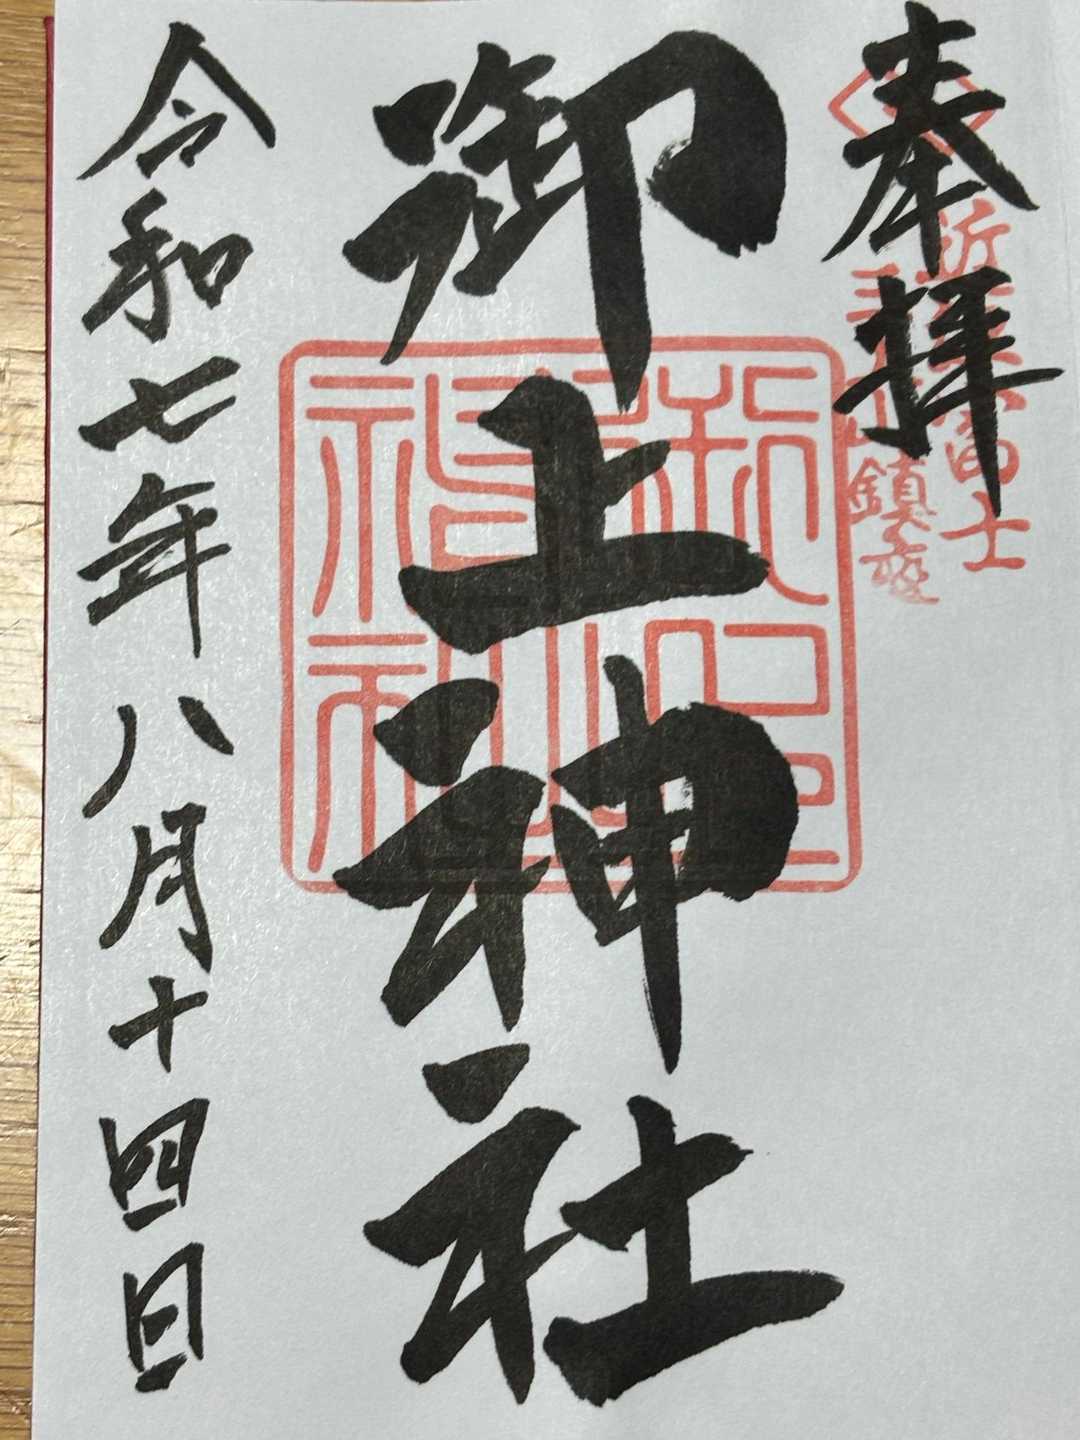 奉拝
近江富士
三上山鎮座
御上神社
令和七年八月十四日